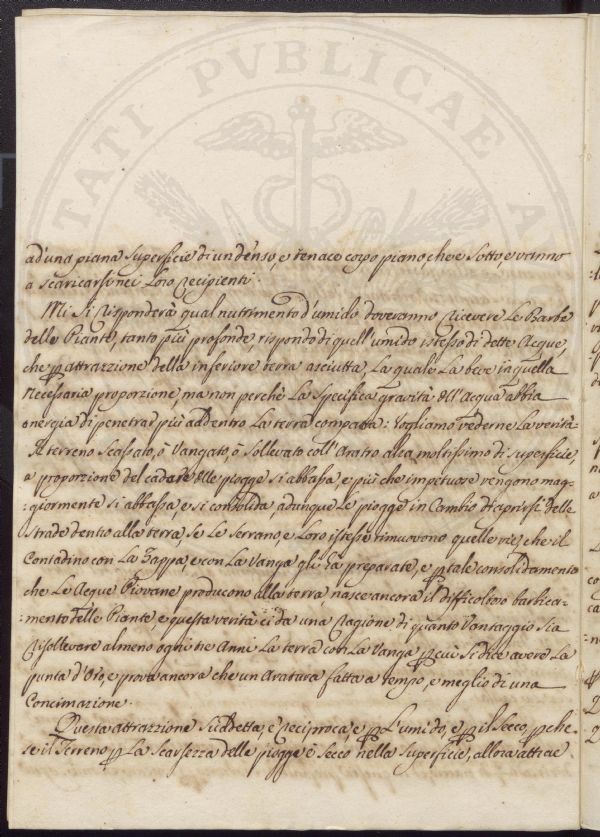 TATI PVBLICAE
ad'una piana Superficie di un denso, e tenace corpo piano, che e Sotto, e vanno
a scaricarsi nei Loro Recipienti.
Mi Si risponderà qual nutrimento d'umido doveranno ricevere Le Barbe
delle Piante, tanto più profonde, rispondo di quell'umido istesso di dette Acque,
che ꝑ attrazione della inferiore terra asciutta, La quale La beve in quella
necessaria proporzione, ma non perchè La Specifica gravità dell'Acqua abbia
energia di penetrar più addentro La terra compatta: Vogliamo vederne La verità.
Il terreno Scassato, ò Vangato, ò Sollevato coll'Aratro alza moltissimo di Superficie,
a proporzione del cadere delle piogge si abbassa, e più che impetuose vengono mag-
:giormente si abbassa, e si consolida, adunque Le piogge in Cambio di aprirsi delle
strade dentro alla terra, se Le serrano, e Loro istesse rimuovono quelle vie, che il
Contadino con La Zappa e con La Vanga gli hà preparate, e ꝑ tale consolidamento
che Le Acque Piovane producono alla terra, nasce ancora il difficoltoso barbica-
:mento delle Piante, e questa verità ci da una Cagione di quanto Vantaggio sia
Risollevare almeno ogni tre Anni La terra con La Vanga ꝑ cui si dice avere La
punta d'Oro, e prova ancora che un Aratura fatta a tempo, e meglio di una
Concimazione.
Questa attrazione Suddetta, è reciproca e ꝑ L'umido, e ꝑ il Secco, ꝑ che
se il Terreno ꝑ La Scarsezza delle piogge è Secco nella Superficie, allora attrae